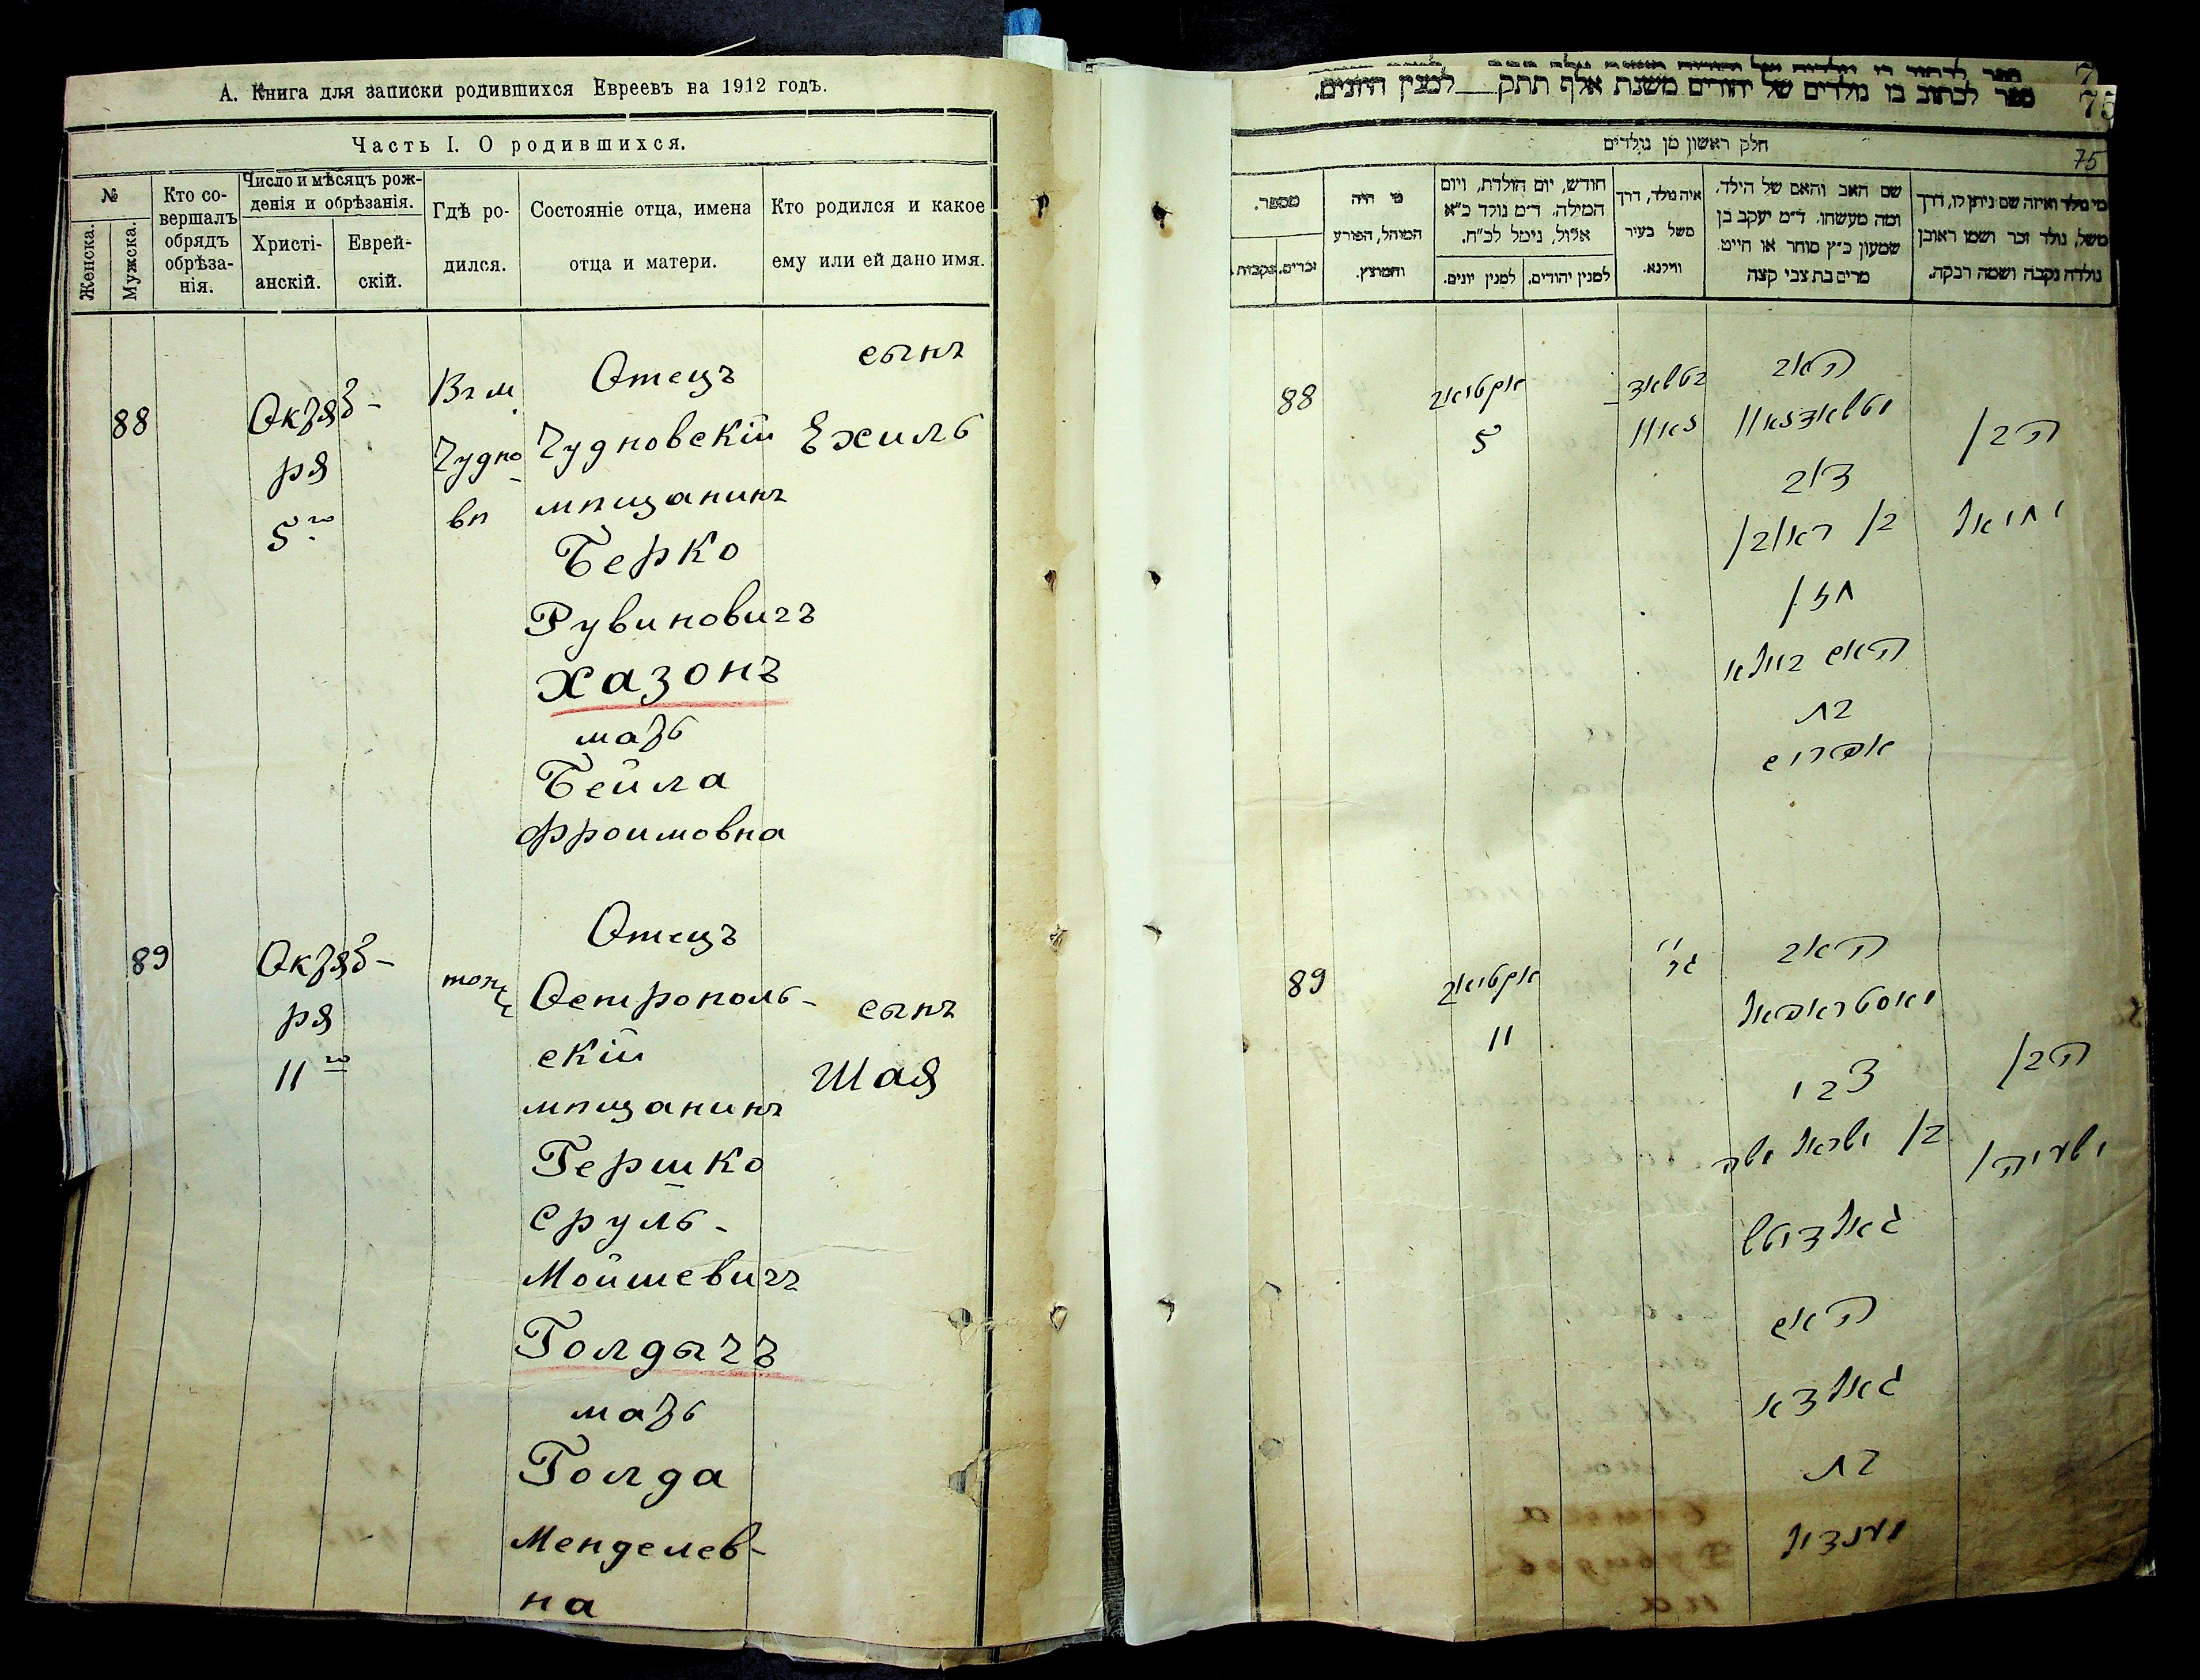 А. Книга для записки родившихся Евреевъ на 1912 годъ.
Часть I. О родившихся.
№
Женска.
Мужска.
Кто со-
вершалъ
обрядъ
обрѣза-
нія.
Число и мѣсяцъ рож-
денія и обрѣзанія.
Христі-
анскій.
Еврей-
скій.
Гдѣ ро-
дился.
Состояніе отца, имена
отца и матери.
Кто родился и какое
ему или ей дано имя.
88
Октяб-
ря
5го
Въ м.
Чудно-
вѣ
Отецъ
Чудновскій
мѣщанинъ
Берко
Рувиновичъ
Хазонъ
мать
Бейла
Фроимовна
сынъ
Ехиль
89
Октяб-
ря
11го
Отецъ
Острополь-
скій
мѣщанинъ
Гершко
Сруль-
Мойшевичъ
Голдычъ
мать
Голда
Менделев-
на
сынъ
Шая
ספר לכתוב בו נולדים של יהודים משנת אלף תתק לסמין היונים.
75
חלק ראשון מן נולדים
75
מספר.
זכרים.
נקבות.
מי היה
המוהל, הפורע
והמוצץ.
חודש, יום הולדת, ויום
המילה. ד״מ נולד כ״א
אלול, נימל לכ״ח.
למנין יונים.
למנין יהודים.
איה נולד, דרך
משל בעיר
ווילנא.
שם האב והאם של הילד,
ומה מעשהו. ד״מ יעקב בן
שמעון כ״ץ סוחר או חייט
מרים בת צבי קצה
מי נולד ואיזה שם ניתן לו, דרך
משל, נולד זכר ושמו ראובן
נולדה נקבה ושמה רבקה.
88
אקטיאב
5
האב
דוב
בן ראובן
חזן
האם ביילא
בת
אפרים
הבן
יחיאל
89
אקטיאב
11
האב
צבי
בן ישראל משה
גאלדיטש
האם
גאלדא
בת
מענדיל
הבן
ישעיה